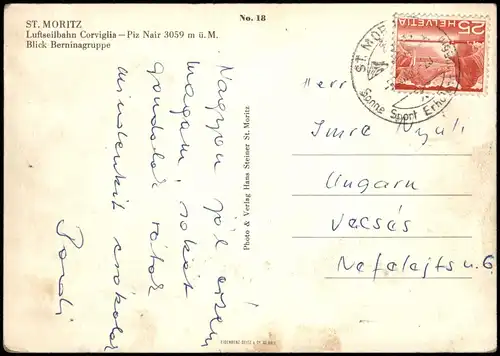 ST. MORITZ
Luftseilbahn Corviglia – Piz Nair 3059 m ü. M.
Blick Berninagruppe
No. 18
Nagyon jól érzem
magam, sokat
gondolok rátok
mindenkit csókolok
Photo & Verlag Hans Steiner St. Moritz
HELVETIA
25
ST. MORITZ
Sonne Sport Erho
Herr
Imre Nyúli
Ungarn
Vecsés
Nefelejts u. 6.